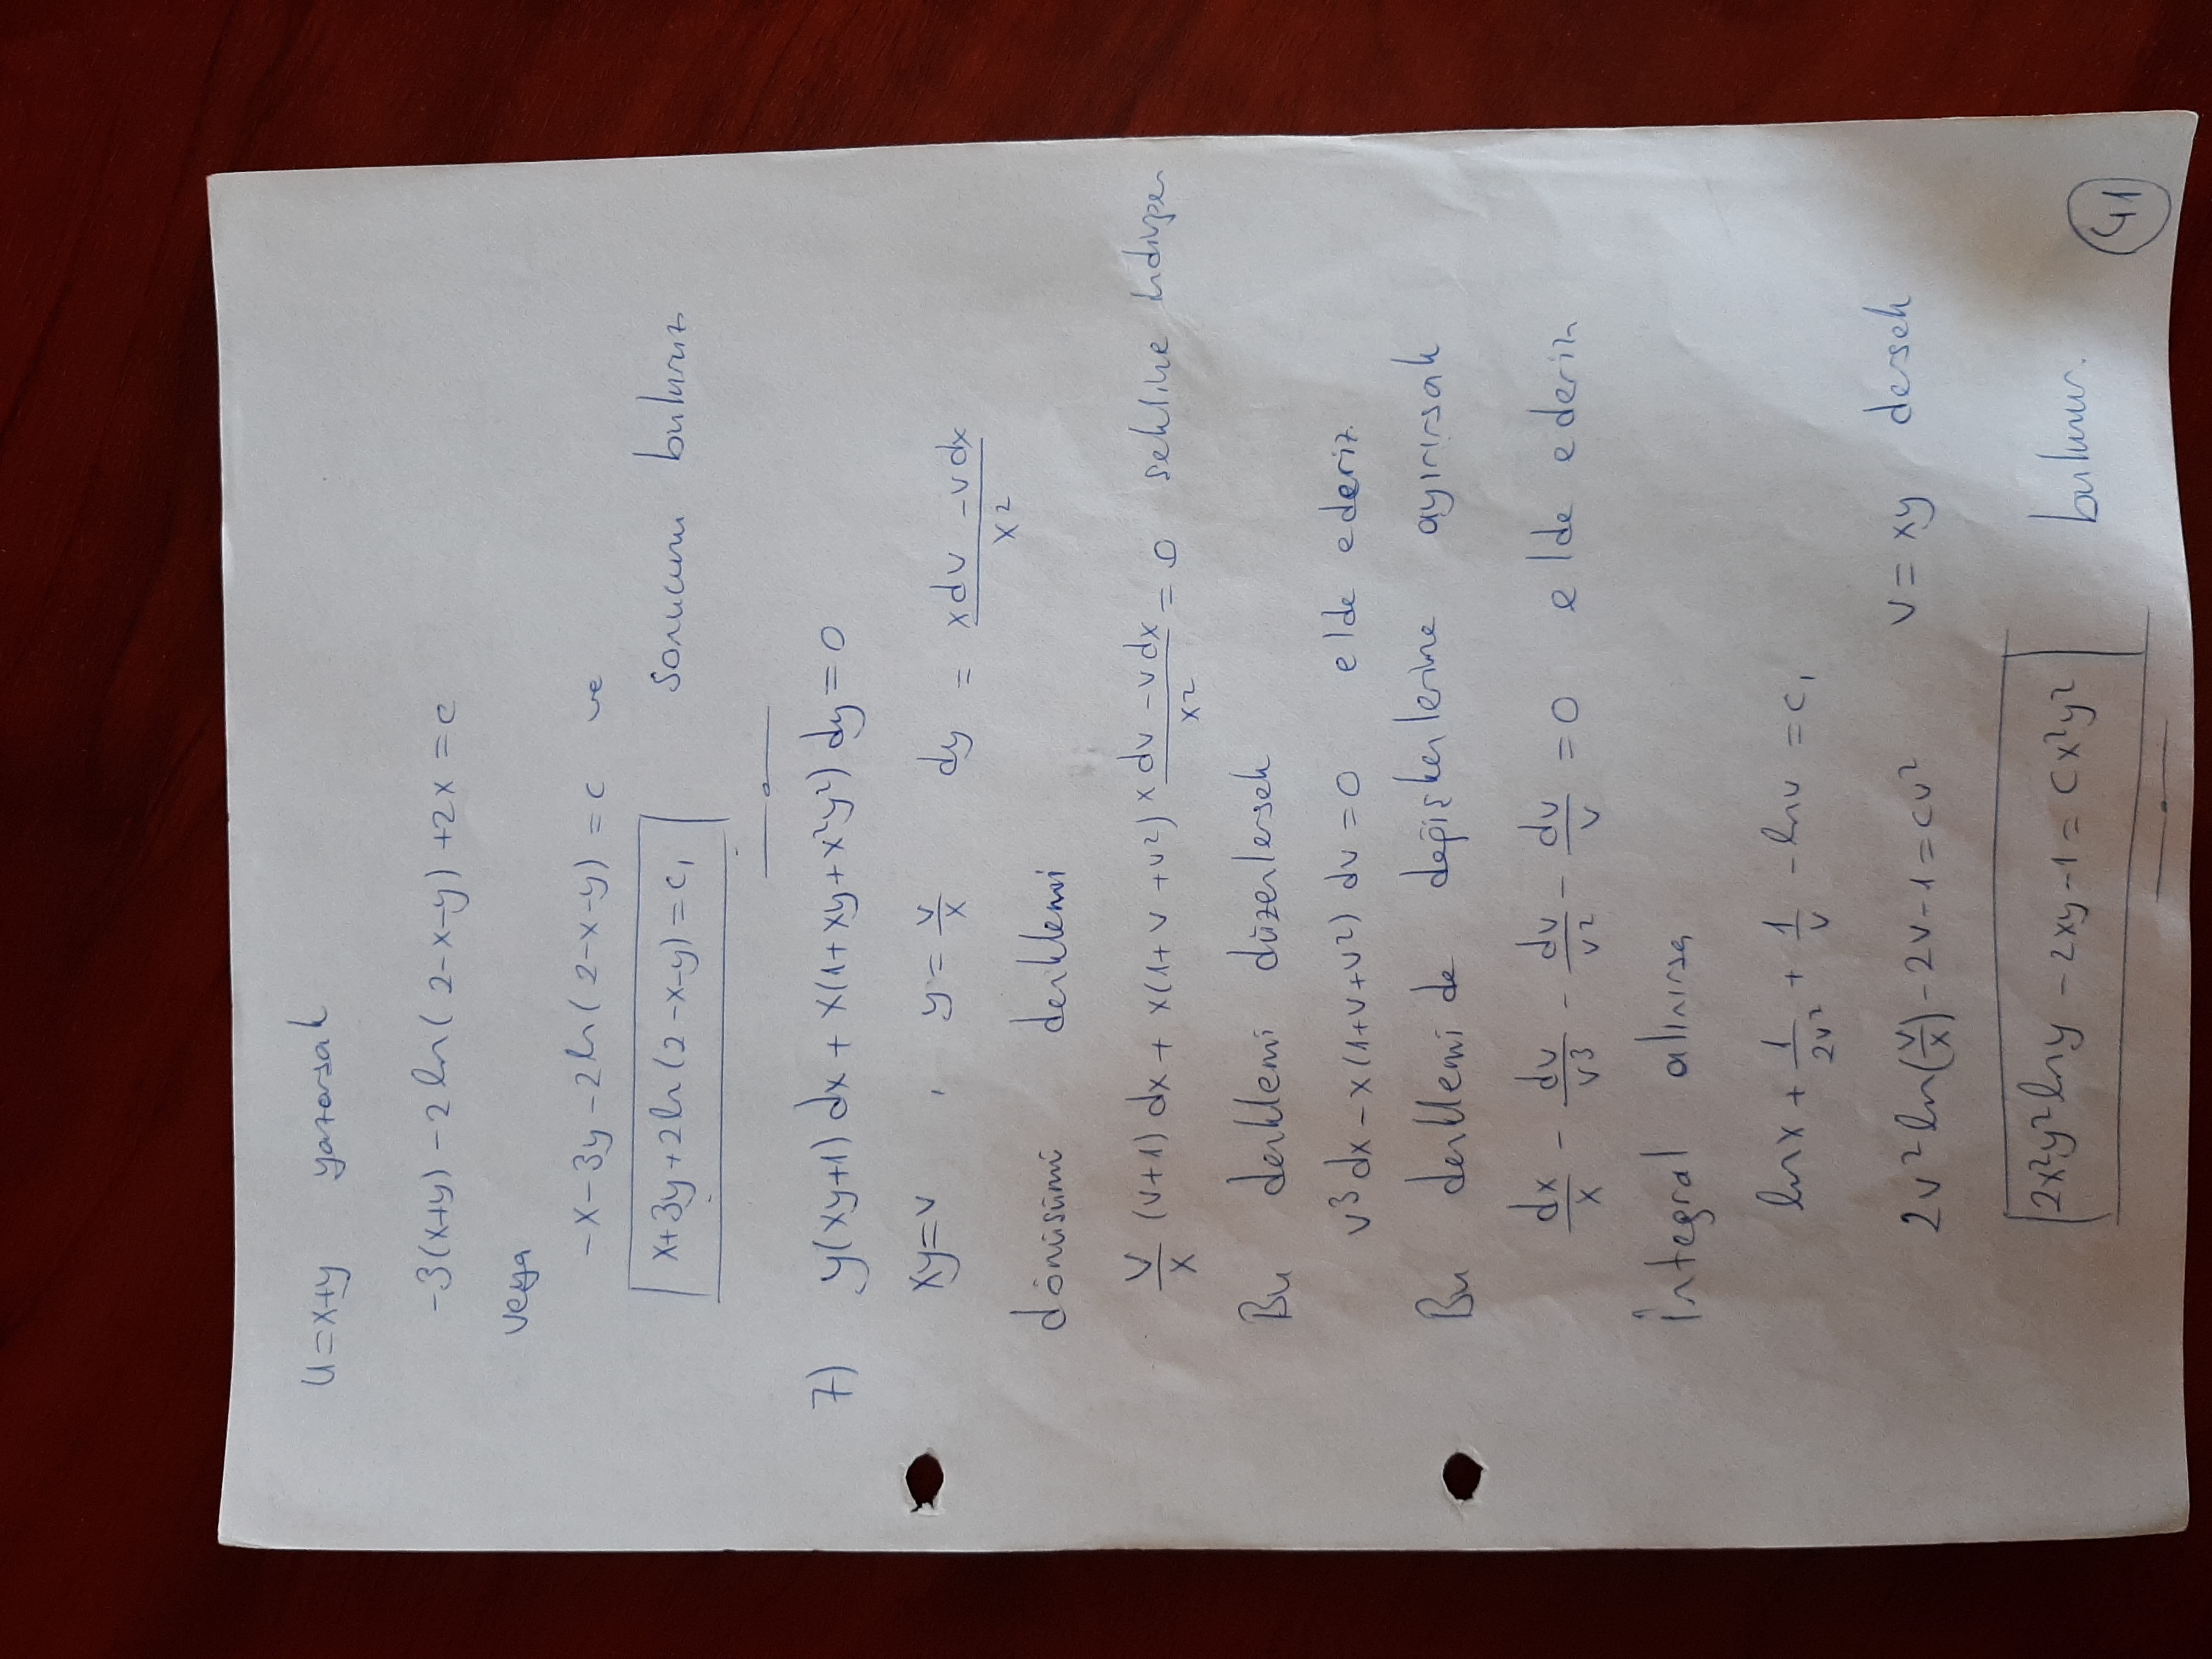 u=x+y yazarsak
-3(x+y) -2 ln( 2-x-y) +2x = c
veya
-x-3y-2ln( 2-x-y) = c ve
x+3y+2ln(2-x-y)=c₁ sonucunu buluruz
7) y(xy+1) dx + x(1+xy+x²y²) dy=0
xy=v , y = v/x dy = (xdv - vdx)/x²
dönüsümü denklemi
v/x (v+1) dx + x(1+v+v²) (x dv - v dx)/x² = 0 sekline indirger
Bu denklemi düzenlersek
v³dx - x(1+v+v²) dv = 0 elde ederiz.
Bu denklemi de değişkenlerine ayırırsak
dx/x - dv/v³ - dv/v² - dv/v = 0 elde ederiz
İntegral alınırsa
lnx + 1/2v² + 1/v - lnv = c₁
2v² ln(v/x) - 2v - 1 = cv² v = xy dersek
2x²y² lny - 2xy - 1 = cx²y² bulunur.
41